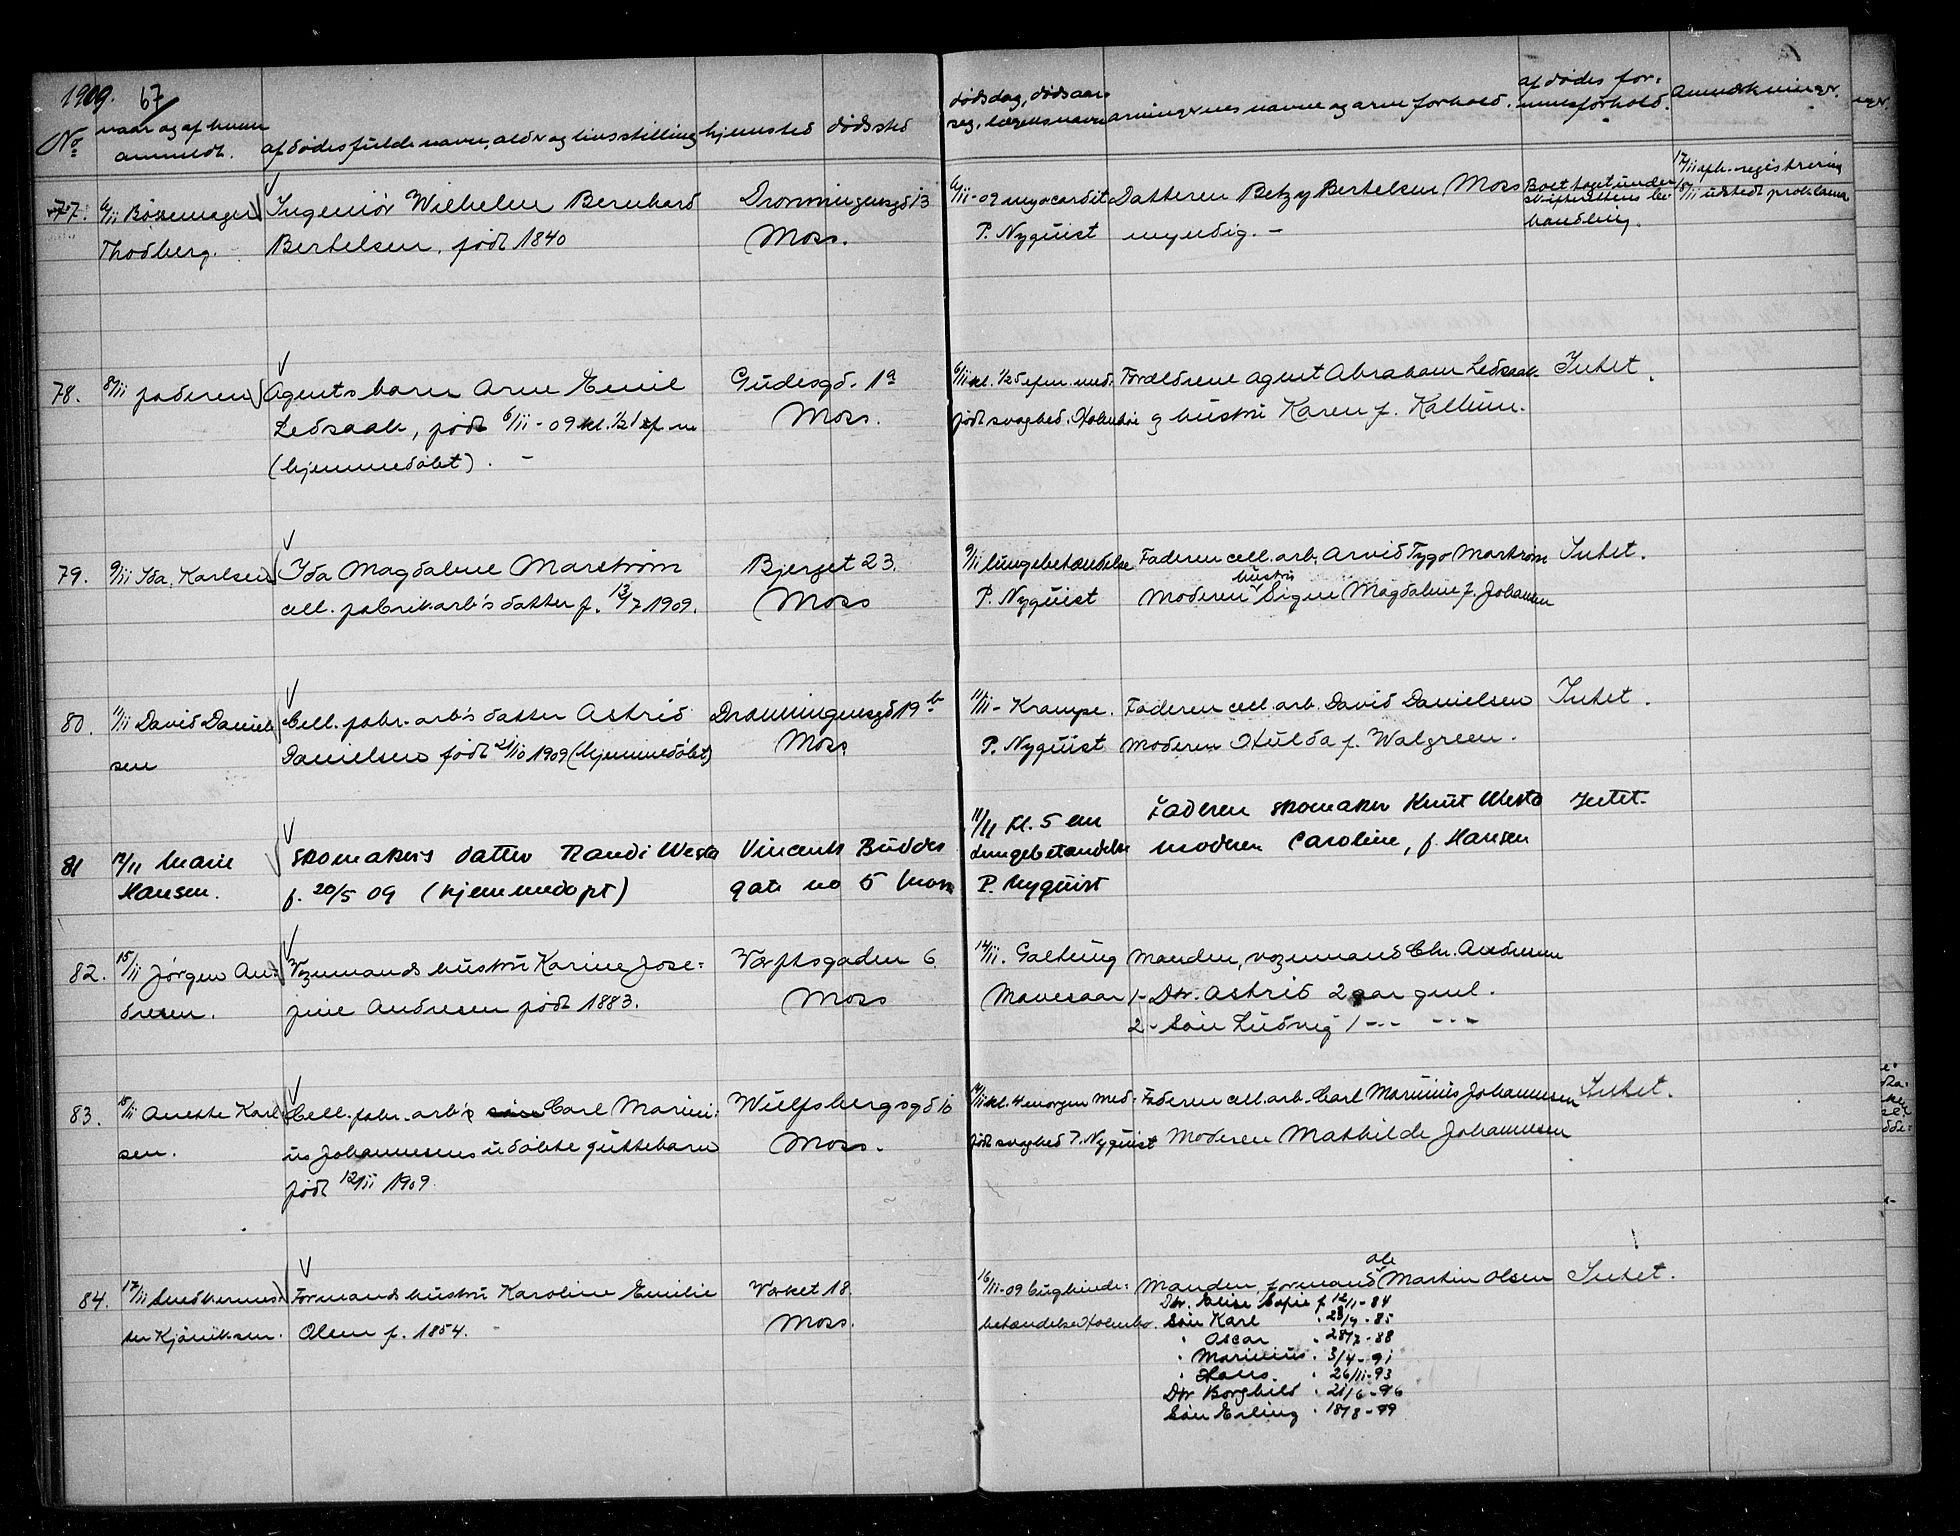 1909. 67
No
naar og af hvem
anmeldt.
afdødes fulde navn, alder og livsstilling
hjemsted
dødssted
dødsdag, dødsaar-
sag, lægens navn
arvingernes navne og arveforhold.
afdødes for-
muesforhold.
Anmerkninger.
77. 6/11 Bössemager
Thodberg.
Ingeniör Wilhelm Bernhard
Bertelsen, født 1840
Dronningensgd 13
Moss.
6/11-09 myocardit
P. Nyquist
Datteren Betzy Bertelsen, Moss
myndig. -
Boet taget under
skifterettens be-
handling.
17/11 afh. registrering
18/11 utstedt proklama
78. 8/11 faderen
Agents barn Arne Emil
Ledsaak, født 6/11-09 kl. 1/2 1 ef m
(hjemmedøbt). -
Gudesgd. 1a
Moss.
6/11 kl. 1/2 5 efm. med-
født svaghed. Holmboe
Forældrene agent Abraham Ledsaak
og hustru Karen f. Kallum.
Intet.
79. 9/11 Ida Karlsen
Ida Magdalene Marström
cell. fabrikarb's datter f. 13/7 1909.
Bjerget 23.
Moss
9/11 lungebetændelse
P. Nyquist
Faderen cell. arb. Arvid Tygo Marström
hustru
Moderen Signe Magdalene f. Johansen
Intet.
80. 11/11 David Daniel-
sen
Cell. fabr. arb's datter Astrid
Danielsen født 21/10 1909 (hjemmedøbt)
Dronningensgd 19 b
Moss
11/11 - Krampe.
P. Nyquist
Faderen cell. arb. David Danielsen
Moderen Hulda f. Walgreen.
Intet.
81 12/11 Marie
Hansen.
Skomakers datter Randi Westa
f. 20/5 09 (hjemmedøpt)
Vincents Buddes
gate no 5 Moss
11/11 kl. 5 em
Lungebetændelse
P. Nyquist
Faderen skomaker Knut Westa
moderen Caroline, f. Hansen
Intet.
82. 15/11 Jørgen An-
dresen.
Vognmands hustru Karine Jose-
fine Andresen født 1883.
Værftsgaden 6.
Moss
14/11. Galtung
Mavesaar
Manden, vognmand Chr. Andresen
1- Dtr. Astrid 2 aar gml.
2- Sön Ludvig 1 -- ---
83. 15/11 Anette Karl-
sen.
Cell. fabr. arb's Carl Marini-
us Johannesens udøbte guttebarn
født 12/11 1909.
Wulfsbergsgd 16
Moss.
14/11 kl. 4 morgen med-
født svaghed P. Nyquist
Faderen cell. arb. Carl Marinius Johannesen
Moderen Mathilde Johannesen
Intet.
84. 17/11 Smedkermes-
ter Kjöniksen.
Formands hustru Karoline Emilie
Olsen f. 1854. -
Værket 18.
Moss.
16/11-09 bughinde-
betændelse Holmbo.
Ole
Manden, formand Martin Olsen
Dtr. Elise Sofie f 12/1-84
Sön Karl " 28/9-85
" Oscar " 28/2-88
" Marinius " 3/4-91
" Hans " 26/11-93
Dtr Borghild " 21/6-96
Sön Erling " 18/8-99
Intet.